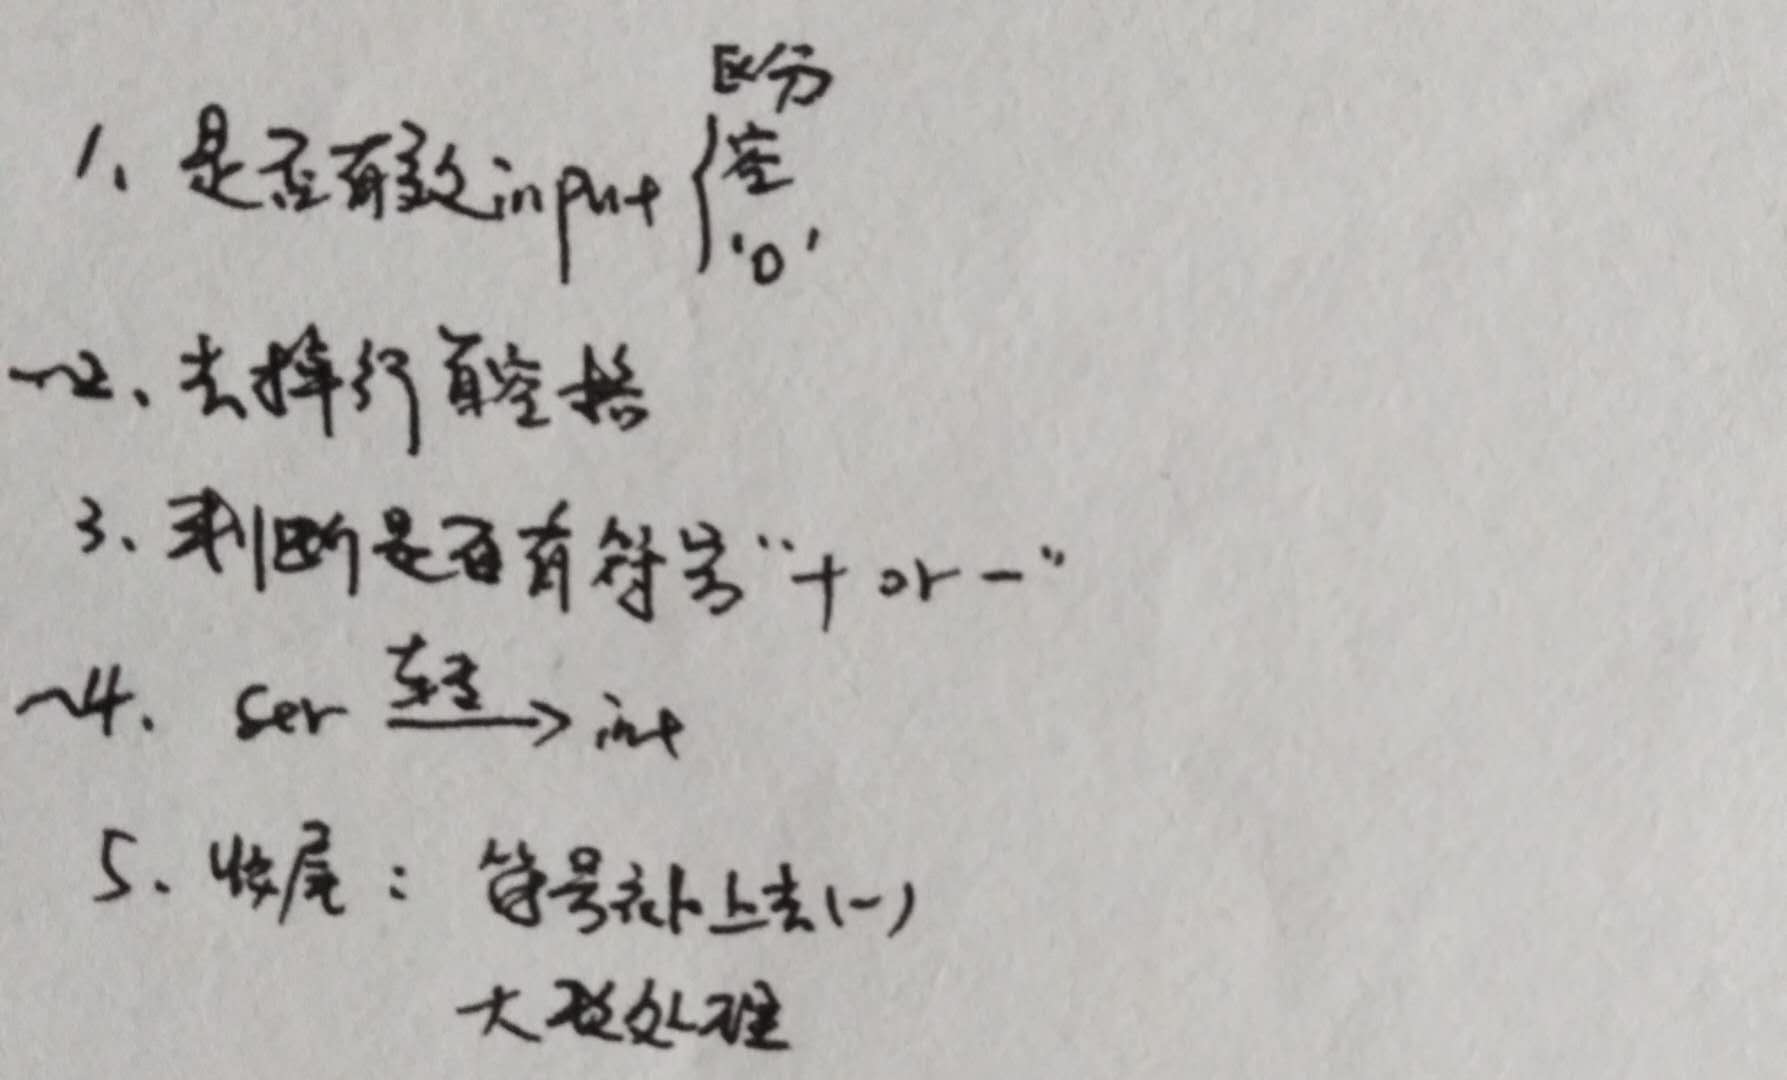 1、是否有效input { 区分 空 '0'
~2、去掉行首空格
3、判断是否有符号"+ or -"
~4. str 转 → int
5、收尾：符号补上去(-)
大数处理